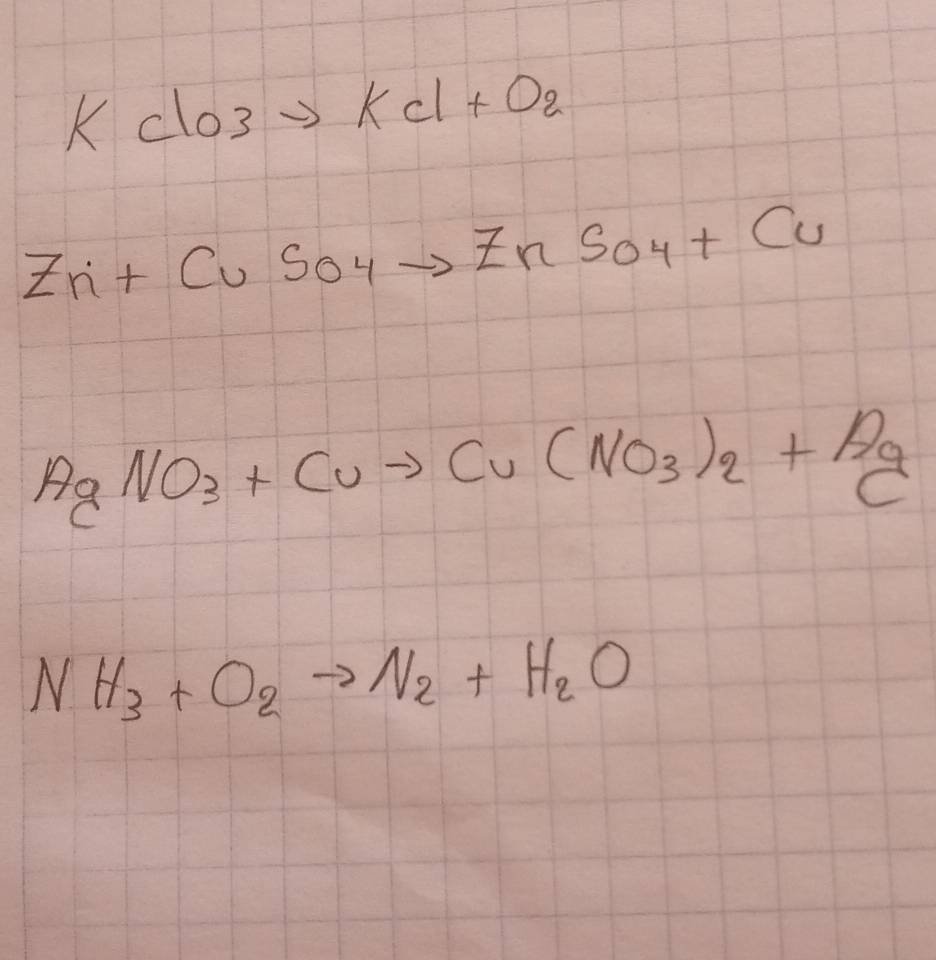 K ClO3 → KCl + O2
Zn + CuSO4 → ZnSO4 + Cu
AgNO3 + Cu → Cu(NO3)2 + Ag
NH3 + O2 → N2 + H2O